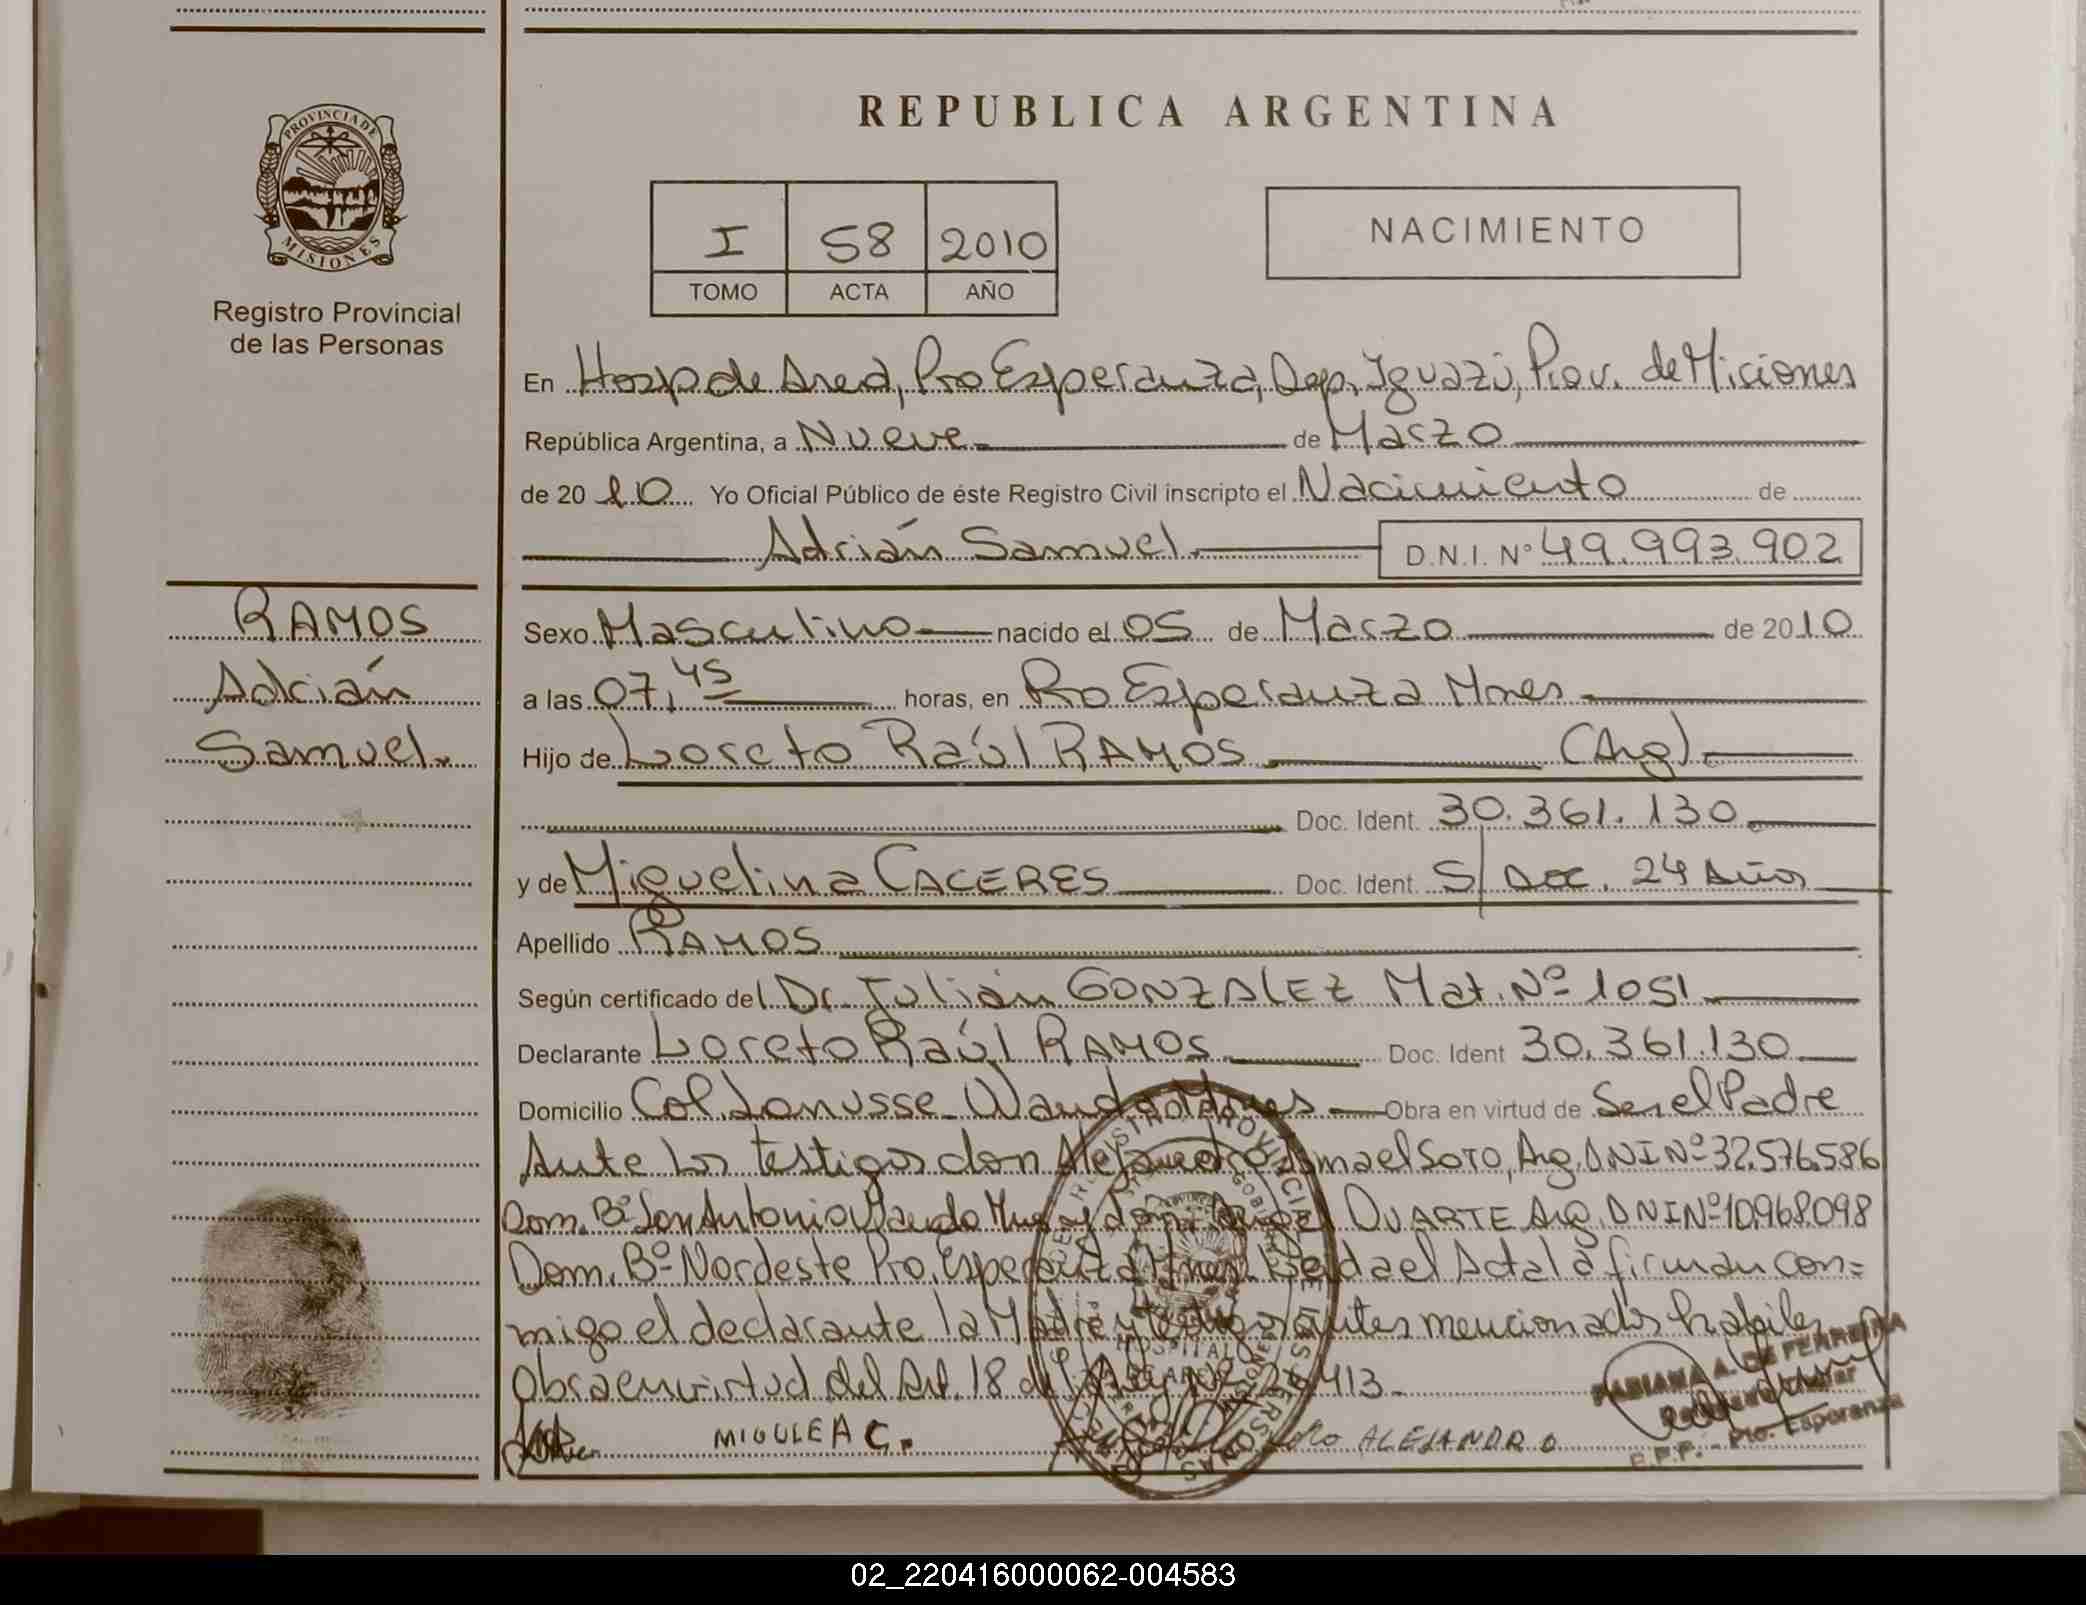 REPUBLICA ARGENTINA
PROVINCIA DE
MISIONES
Registro Provincial
de las Personas
I 58 2010
TOMO ACTA AÑO
NACIMIENTO
En Hosp de Area, Pto Esperanza, Dep. Iguazú, Prov. de Misiones
República Argentina, a Nueve de Marzo
de 20 10 Yo Oficial Público de éste Registro Civil inscripto el Nacimiento de
Adrián Samuel D.N.I. Nº 49.993.902
RAMOS
Adrián
Samuel
Sexo Masculino nacido el 05 de Marzo de 2010
a las 07,45 horas, en Pto Esperanza Mnes
Hijo de Loreto Raúl RAMOS (Arg)
Doc. Ident. 30.361.130
y de Miguelina CACERES Doc. Ident. S/ Doc. 24 Años
Apellido RAMOS
Según certificado del Dr. Julián GONZALEZ Mat. Nº 1051
Declarante Loreto Raúl RAMOS Doc. Ident 30.361.130
Domicilio Col. Lanusse Wanda Mnes Obra en virtud de Ser el Padre
Ante los testigos don Alejandro Ismael SOTO, Arg. DNI Nº 32.576.586
Dom. Bº San Antonio Wanda Mnes y don DUARTE Arg. DNI Nº 10.968.098
Dom. Bº Nordeste Pto. Esperanza Mnes. Leida el Acta la firman con=
migo el declarante la Madre y testigos antes mencionados habiles
Obra en virtud del Art. 18 de la Ley 26.413.
MIGULEA C. ALEJANDRO
FABIANA A. DE FERREIRA
Pto. Esperanza
02_220416000062-004583